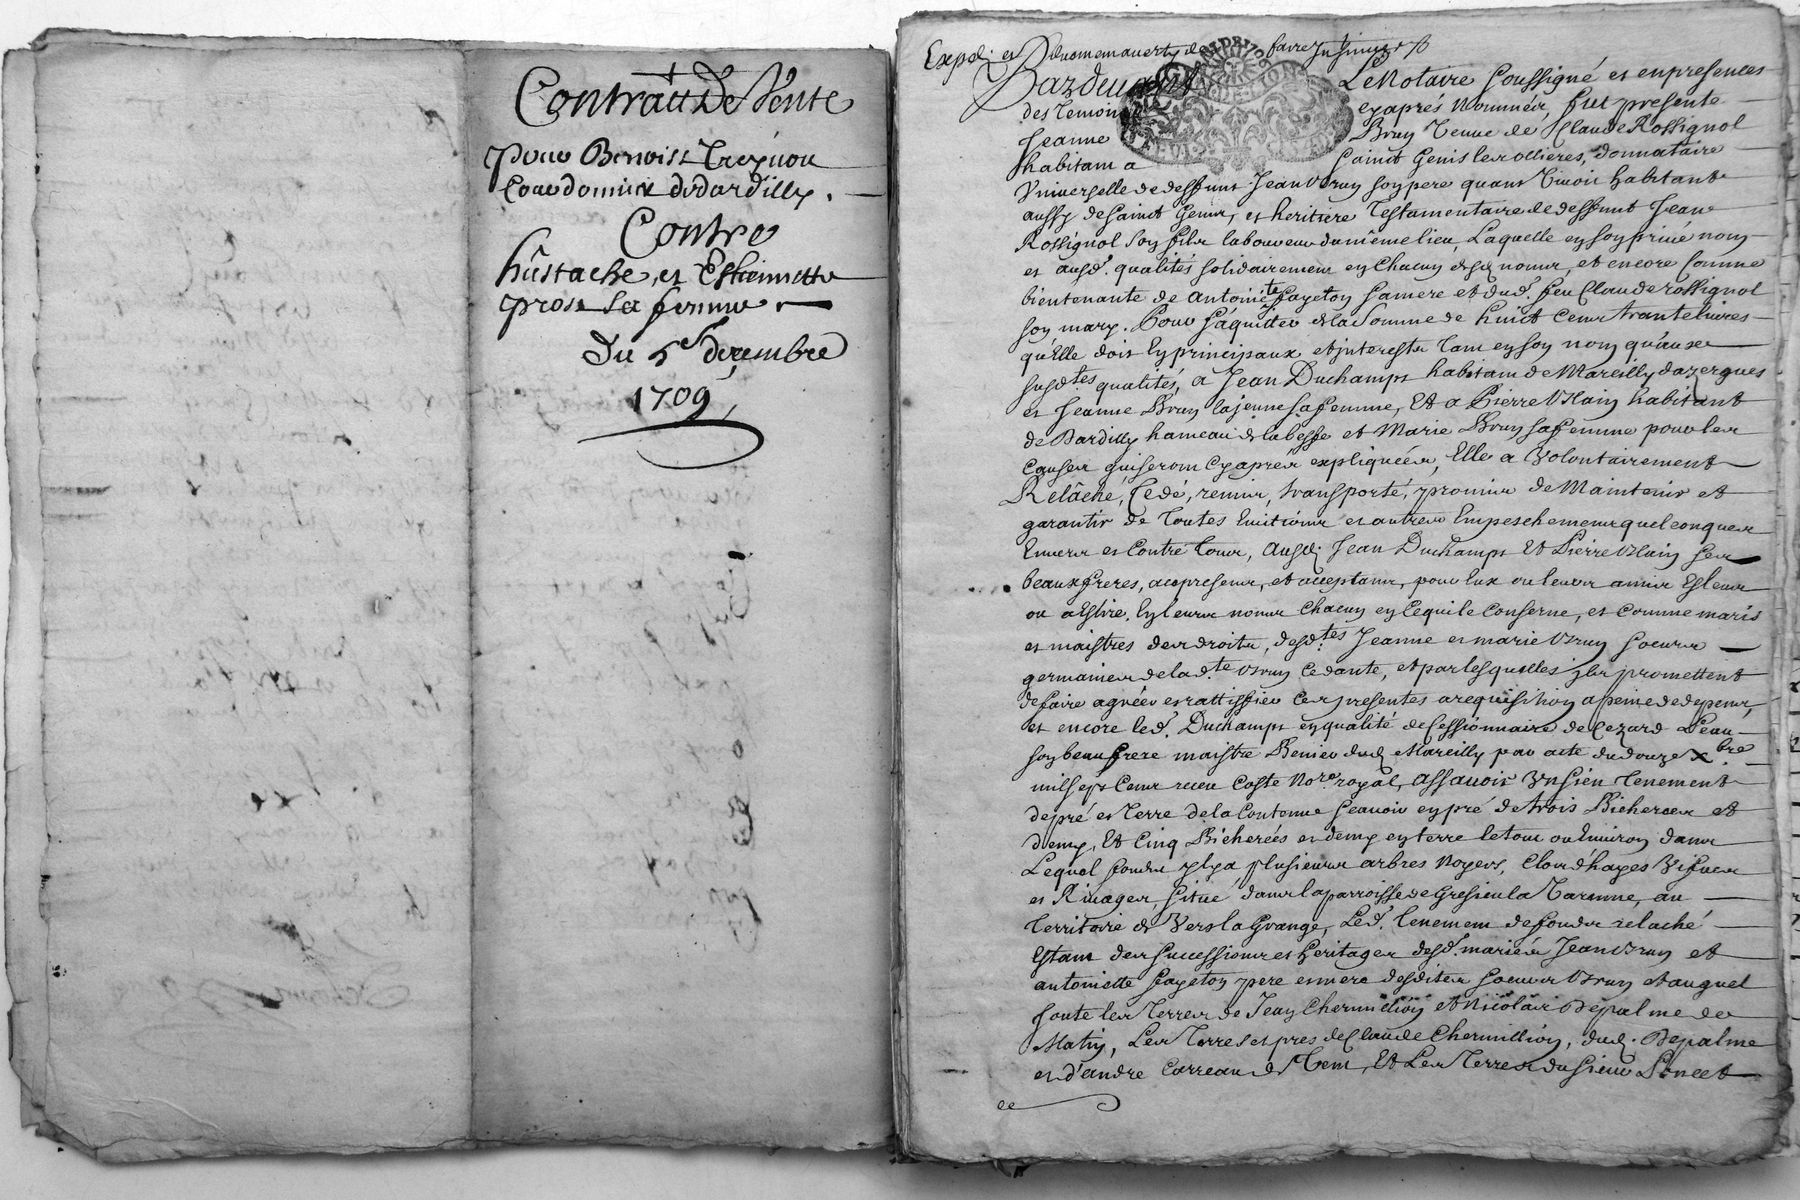 Contract De Vente
pour Benoist
Cordonnier de dardilly.
Contre
hûstache et Estiennette
prost sa femme
Du 5e decembre
1709
Expedi et
Pardevant Le Notaire Soussigné et en presences
des Temoins cy aprés Nommés, fut presente
Jeanne Brun veuve de Claude Rossignol
habitant a Sainct Genis les ollieres, donnataire
Vniverselle de deffunt Jean Brun son pere quant vivoit habitant
aussy de Sainct Genis, et heritiere Testamentaire de deffunt Jean
Rossignol son fils laboureur du même lieu, Laquelle en son privé nom
et ausd. qualités solidairement en Chacun desd. noms, et encore comme
bientenante de Antoinette Payeton sa mere et dud. feu Claude rossignol
son mary. Pour s'aquitter de la Somme de huict Cents trante livres
qu'Elle doit en principaux et interests tant en son nom qu'aux
susd.tes qualités, a Jean Duchamps habitant de Mareilly dazergues
et Jeanne Brun la jeune sa femme, Et a Pierre habitant
de Dardilly hameau de la besse et Marie Brun sa femme pour les
Causes qui seront Cy aprés expliquées, Elle a Volontairement
Relâché, Cedé, remis, transporté, promis de Maintenir et
garantir de Toutes Evictions et autres Empeschements quelconques
Envers et Contre Tous, ausd. Jean Duchamps Et Pierre ses
beauxfreres, acceptants, pour Eux ou leurs amis Esleus
ou a Eslire, En leurs noms Chacun en Ce qui le Conserne, et comme maris
et maistres des droits, desd.tes Jeanne et marie Brun soeurs
germaines de lad.te Brun Cedante, et par lesquelles ils promettent
de faire agréer et rattiffier Ces presentes a requisition a peine de depens,
et encore led. Duchamps en qualité de Cessionnaire de Cezard
son beau frere maistre dud. Mareilly par acte du douze Xbre
mil sept Cent receu Coste No.re royal, assavoir Vn sien Tenement
de pré et Terre de la Contenue scavoir en pré de trois Bicherées et
demy, Et Cinq Bicherées et demy en terre le tout ou Environ dans
Lequel fonds il y a plusieurs arbres Noyers, Clos d'hayes Vifves
et Rivages, situé dans la parroisse de Gresieu la Varenne, au
Territoire de Vers la Grange, Led. Tenement de fonds relaché
Estant des successions et heritages desd. mariés Jean Brun et
antoinette Payeton pere et mere desdites soeurs Brun et auquel
joute les Terres de Jean Chermillion et Nicolas Depalme de
Matin, Les Terres et pres de Claude Chermillion, dud. Depalme
et d'andre Carreau de Vent, Et Les Terres du Sieur